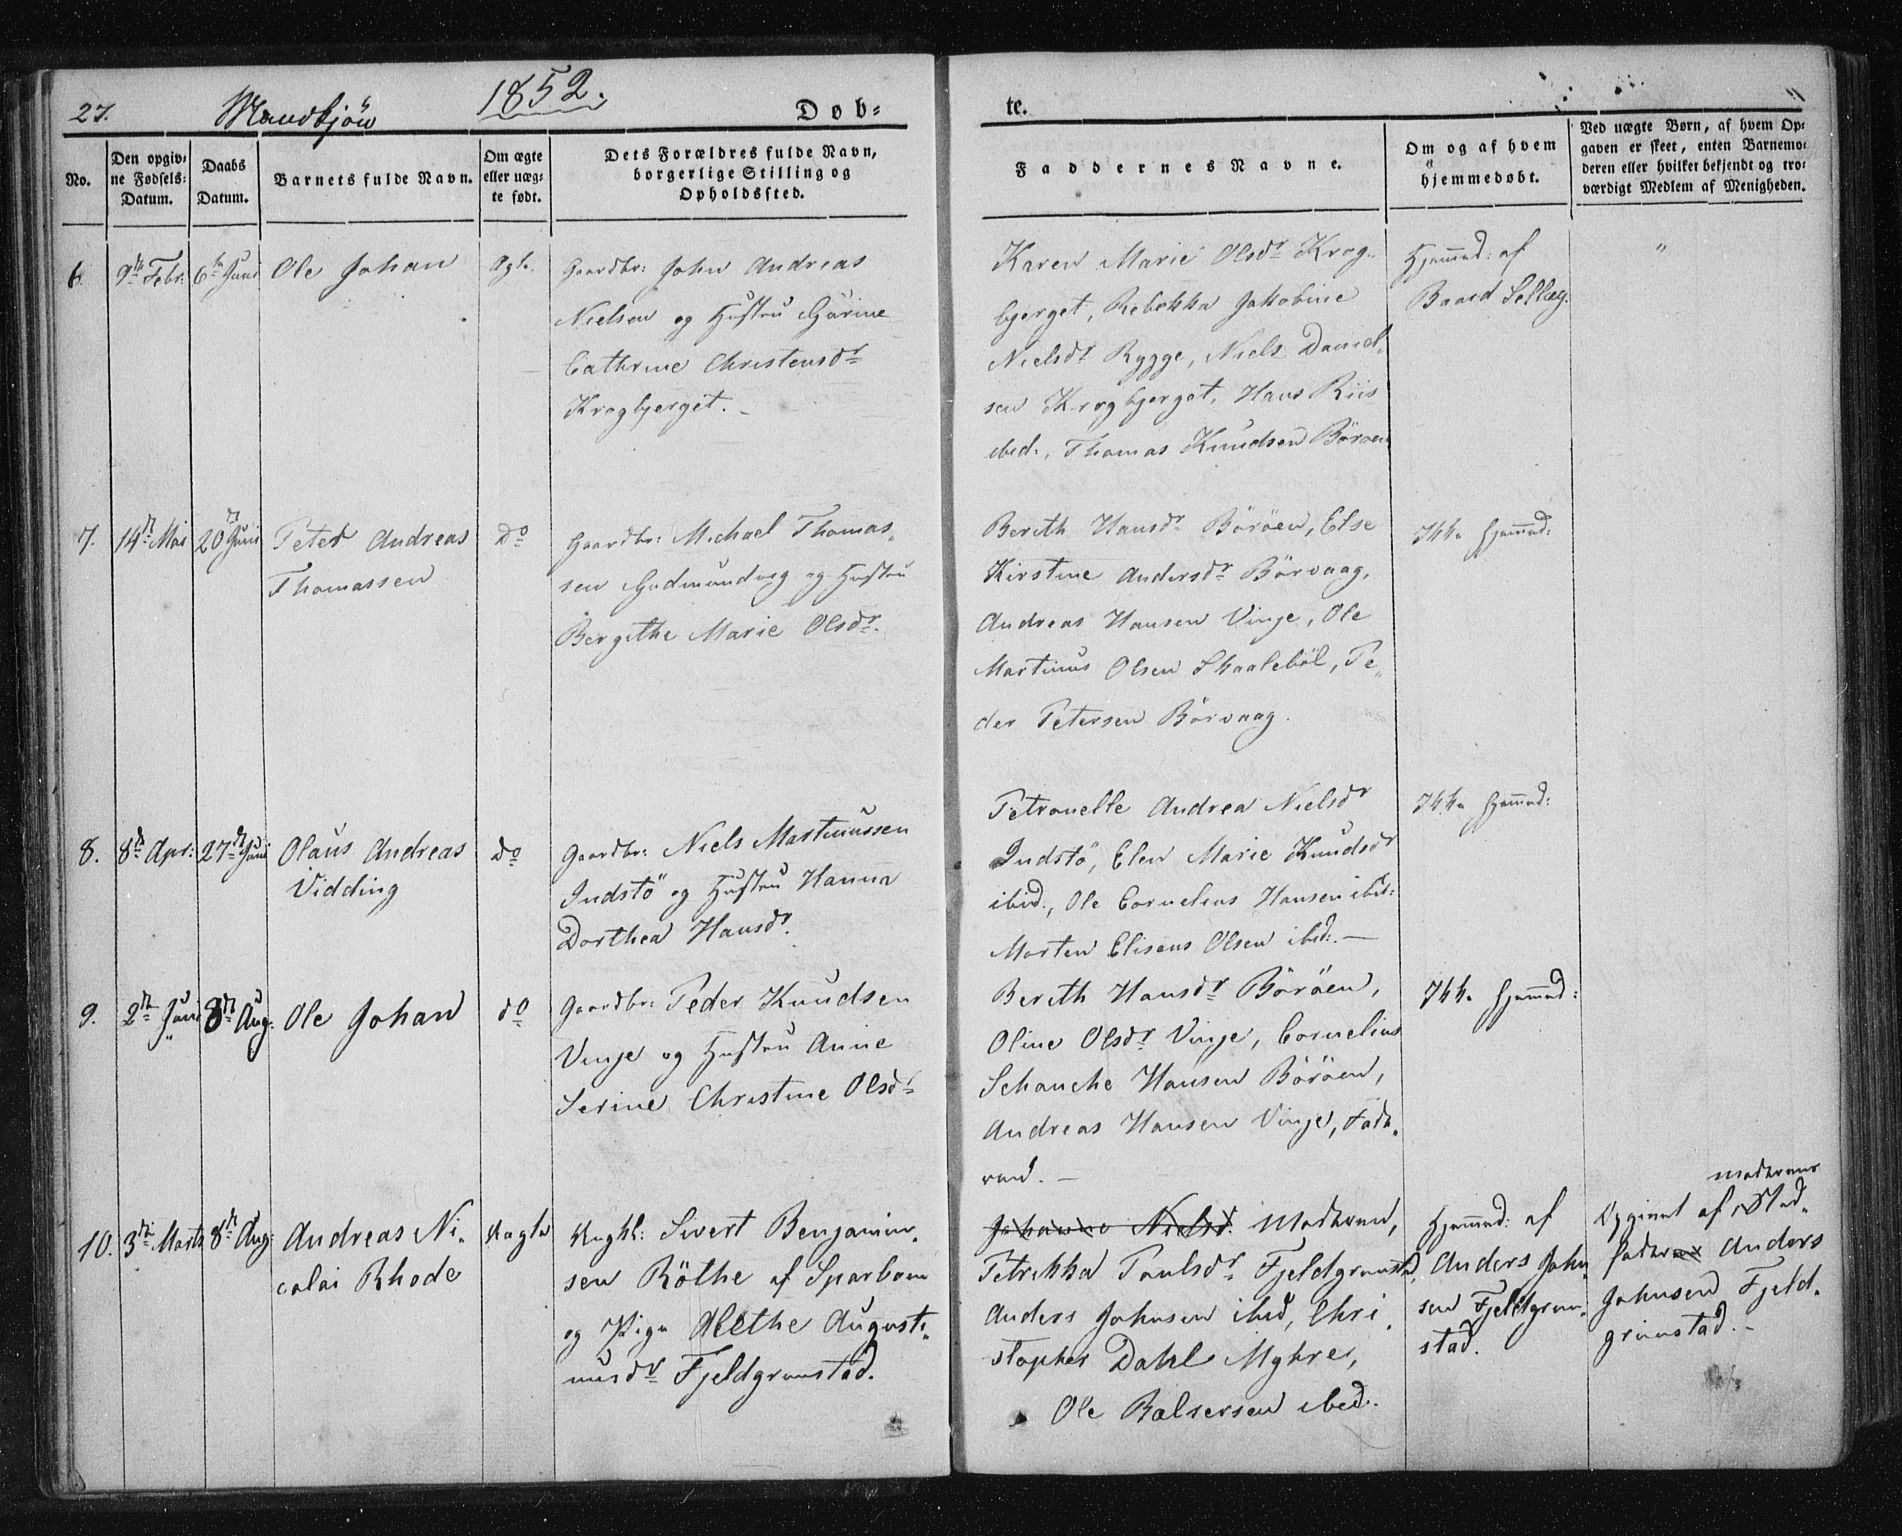 27. Mandkjön 1852. Døb=
te.
No.
Den opgiv=
ne Fødsels=
Datum.
Daabs
Datum.
Barnets fulde Navn.
Om ægte
eller uæg=
te født.
Dets Forældres fulde Navn,
borgerlige Stilling og
Opholdssted.
Faddernes Navne.
Om og af hvem
hjemmedøbt.
Ved uægte Børn, af hvem Op=
gaven er skeet, enten Barnemo=
deren eller hvilket bekjendt og tro=
værdigt Medlem af Menigheden.
6. 9de Febr: 6te Juni Ole Johan Ægte.
Gaardbr: John Andreas
Nielsen og Hustru Gurine
Cathrine Christensdr
Krogbjerget.
Karen Marie Olsdr Krog-
bjerget, Rebekka Jakobine
Nielsdr Rygge, Niels Daniel-
sen Krogbjerget, Hans Riis
ibid:, Thomas Knudsen Böröen
Hjemmed: af
Baard Sellæg.
"
7. 14de Mai 20de Juni Peter Andreas
Thomassen
Do
Gaardbr: Michael Thomas-
sen Gudmundvig og Hustru
Bergithe Marie Olsdr.
Bereth Hansdr Böröen, Else
Kirstine Andersdr Börvaag,
Andreas Hansen Vinje, Ole
Martinus Olsen Skaaleböl, Pe-
der Petersen Börvaag.
Ikke hjemmed:
8. 8de Apr: 27de Juni Olaus Andreas
Vidding
do
Gaardbr: Niels Martinussen
Indstö og Hustru Hanna
Dorthea Hansdr.
Petronelle Andrea Nielsdr
Indstö, Elen Marie Knudsdr
ibid:, Ole Cornelius Hansen ibid:
Morten Eliseus Olsen ibid:.
Ikke hjemmed:
9. 2de Juni 8de Aug: Ole Johan do
Gaardbr: Peder Knudsen
Vinje og Hustru Anne
Serine Christine Olsdr
Bereth Hansdr Böröen,
Oline Olsdr Vinje, Cornelius
Schanche Hansen Böröen,
Andreas Hansen Vinje, Fade-
ren.
Ikke hjemmed:
10. 3die Marts 8de Aug: Andreas Ni-
colai Rhode
Uægte
Ungk: Sivert Benjamin-
sen Röthe af Sparboen
og Pige Alethe Augusti-
nusdr Fjeldgrunstad.
Johanne Nielsd. Moderen,
Petrikka Poulsdr Fjeldgrunstad,
Anders Johnsen ibid, Chri-
stopher Dahl Myhre,
Ole Balsersen ibid.
Hjemmed: af
Anders John-
sen Fjeldgrun-
stad.
Opgivet af Moderens Sted-
fader Anders
Johnsen Fjeld-
grunstad.